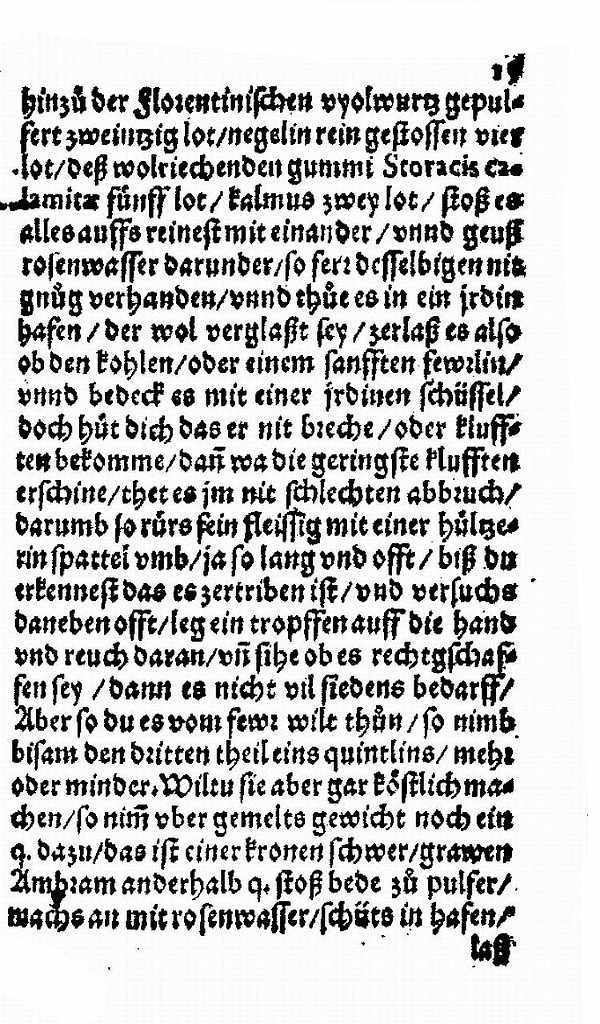 hinzů der Florentinischen vyolwurtz gepul-
fert zweintzig lot/negelin rein gestossen vier
lot/deß wolriechenden gummi Storacis Ca-
lamitæ fünff lot/ kalmus zwey lot/ stoß es
alles auffs reinest mit einander/vnnd geuß
rosenwasser darunder/so ferr desselbigen nit
gnůg verhanden/vnnd thůe es in ein jrdin
hafen/der wol verglaßt sey/zerlaß es also
ob den kohlen/oder einem sanfften fewrlin/
vnnd bedeck es mit einer jrdinen schüssel/
doch hüt dich das er nit breche/oder kluff-
ten bekomme/dañ wa die geringste klufften
erschine/thet es jm nit schlechten abbruch/
darumb so rürs fein fleissig mit einer hültze-
rin spattel vmb/ja so lang vnd offt/ biß du
erkennest das es zertriben ist/vnd versuchs
daneben offt/leg ein tropffen auff die hand
vnd reuch daran/vñ sihe ob es rechtgschaf-
fen sey /dann es nicht vil siedens bedarff/
Aber so du es vom fewr wilt thůn/so nimb
bisam den dritten theil eins quintlins/ mehr
oder minder. Wiltu sie aber gar köstlich ma-
chen/so nim̃ vber gemelts gewicht noch ein
q. dazu/das ist einer kronen schwer/grawen
Ambram anderhalb q. stoß bede zů pulfer/
machs an mit rosenwasser/schüts in hafen/
laß